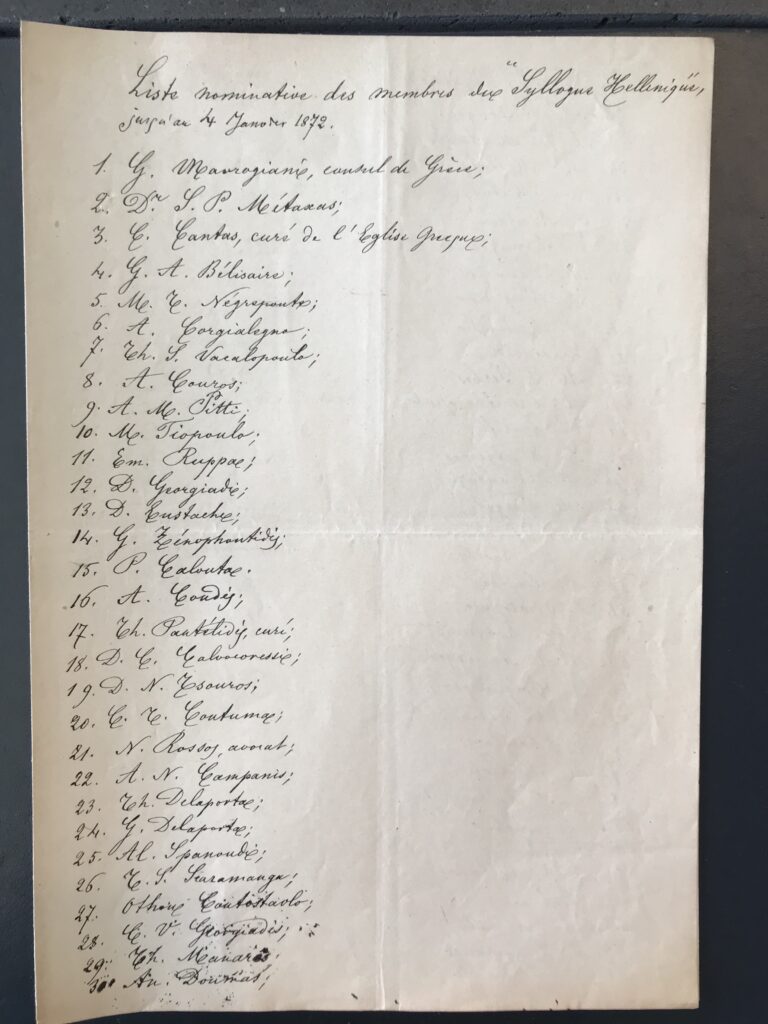 Liste nominative des membres du "Syllogue Hellenique",
jusqu'au 4 Janvier 1872.
1. G. Mavrogianis, consul de Grèce;
2. Dr. S. P. Métaxas;
3. C. Cantas, curé de l'Eglise Grecque;
4. G. A. Bélisaire;
5. M. T. Négreponte;
6. A. Corgialegno;
7. Th. S. Vacalopoulo;
8. A. Couros;
9. A. M. Pitti;
10. M. Tiopoulo;
11. Em.
12. D. Georgiadis;
13. D. Eustache;
14. G. Xénophontidis;
15. P. Calouta.
16. A. Coudis;
17. Th. Pantélidis, curé;
18. D. C. Calvocoressi;
19. D. N. Tsouros;
20. C. T. Coutuma;
21. N. Rossos, avocat;
22. A. N. Campanis;
23. Th. Delaporta;
24. G. Delaporta;
25. Al. Spanoudi;
26. T. S. Scaramanga;
27. Othon Contostavlo;
28. C. V. Georgiadis;
29. Th. Manaris;
30. An. Doumas;